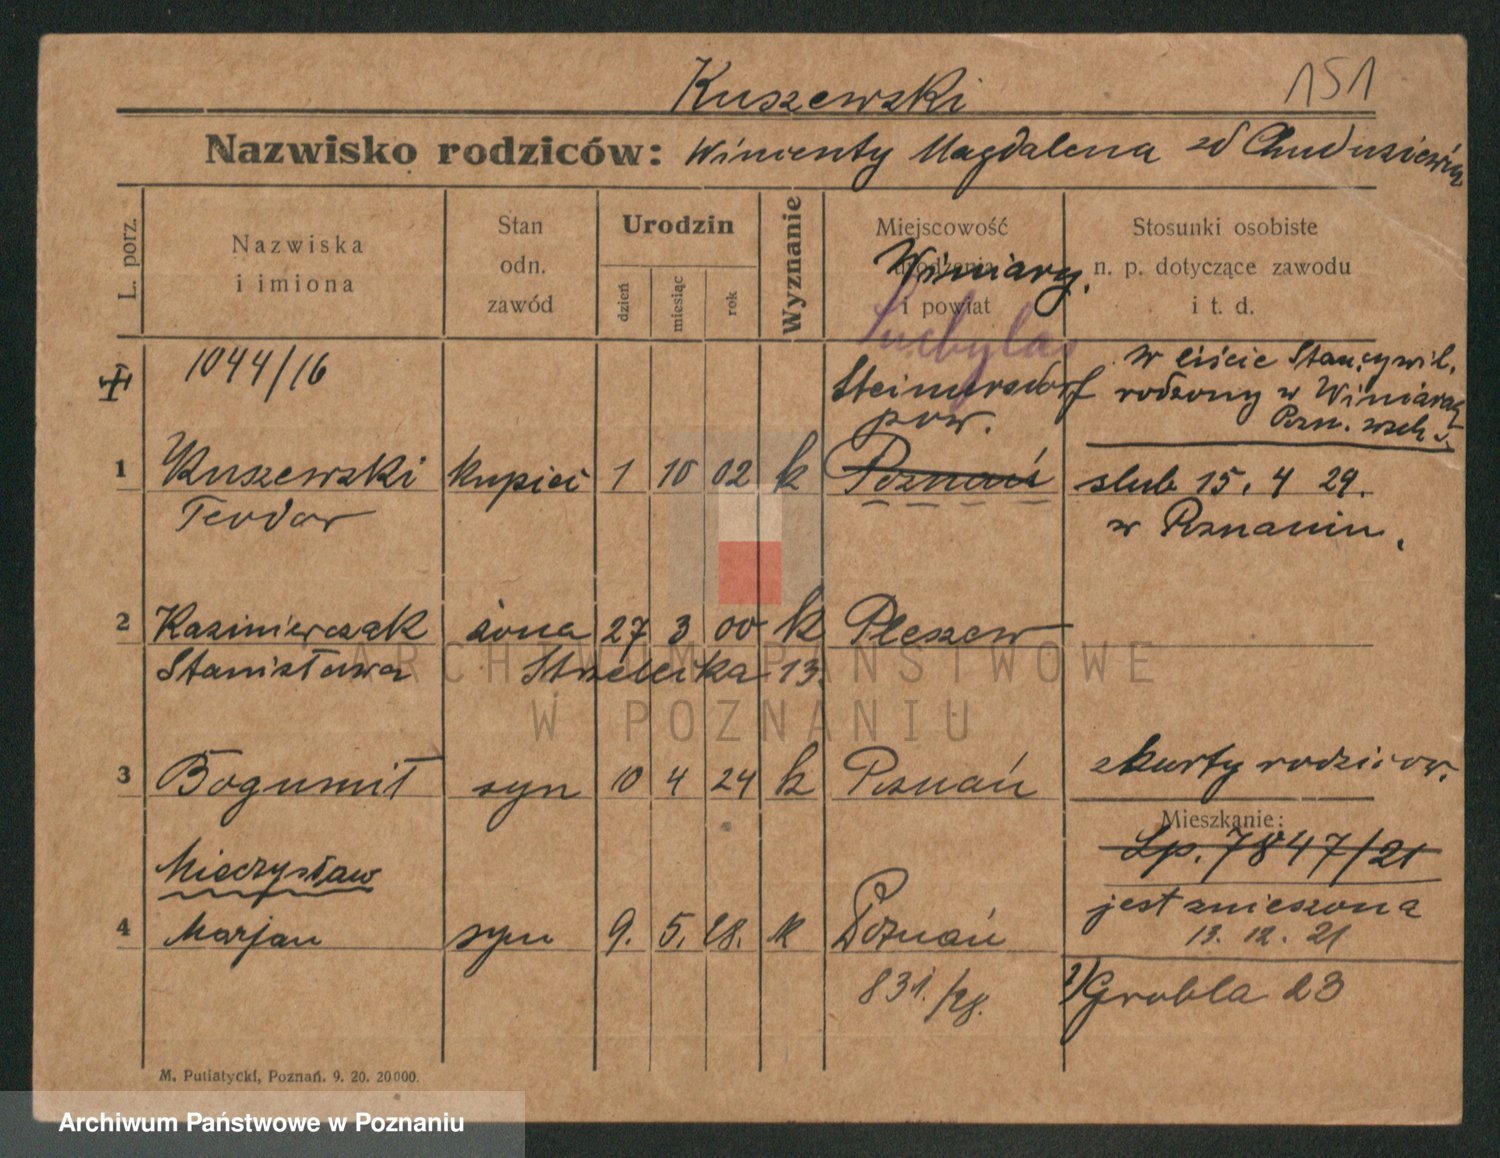 151
Kuszewski
Nazwisko rodziców: Wincenty Magdalena zd
L. porz.
Nazwiska
i imiona
Stan
odn.
zawód
Urodzin
dzień
miesiąc
rok
Wyznanie
Miejscowość
urodzenia
i powiat
Winiary.
Suchylas
Stosunki osobiste
n. p. dotyczące zawodu
i t. d.
1044/16
Steinersdorf
pow.
w liście Stan. cywil.
rodzony w Winiarach
Pozn. wsch.
1 Kuszewski kupiec 1 10 02 k Poznań ślub 15. 4 29.
Teodor w Poznaniu.
2 Kazimierczak żona 27 3 00 k Pleszew
Stanisława Strzelecka 13.
3 Bogumił syn 10 4 24 k Poznań z karty rodziców.
Mieszkanie:
Lp. 7847/21
Mieczysław
jest zniesiona
4 Marjan syn 9. 5. 28. k Poznań
13. 12. 21
831/28.
2) Grobla 23
M. Putiatycki, Poznań. 9. 20. 20000.
ARCHIWUM PAŃSTWOWE
W POZNANIU
Archiwum Państwowe w Poznaniu